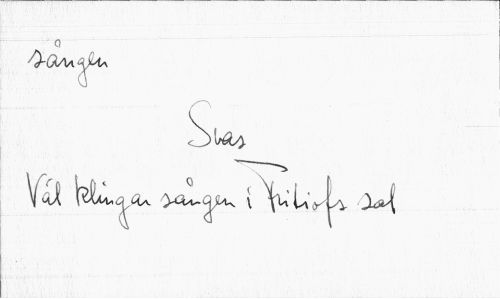 sången
Svas
Väl klingar sången i Fritiofs sal